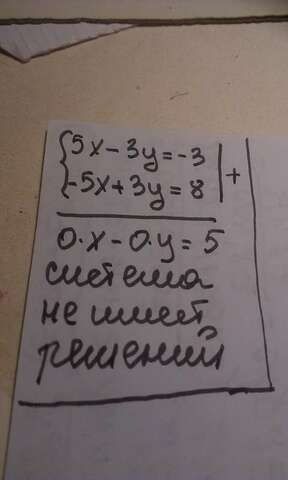 5x - 3y = -3
-5x + 3y = 8 | +
0·x - 0·y = 5
система
не имеет
решений